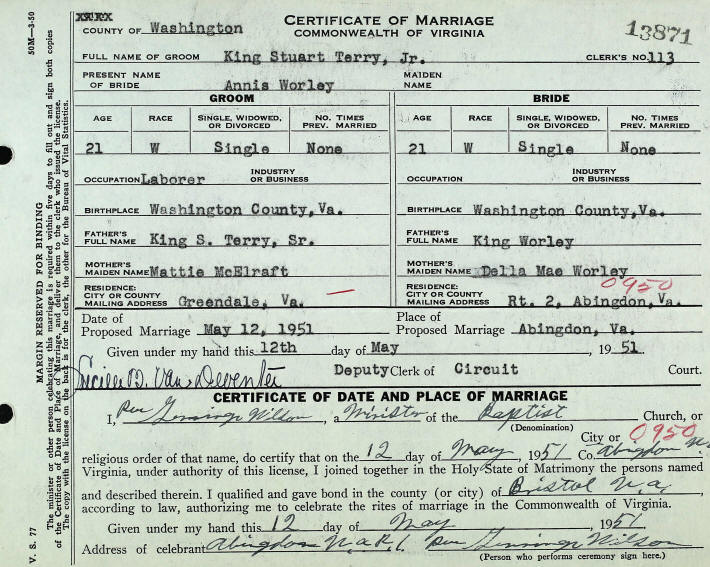 XXXXX
COUNTY OF Washington
CERTIFICATE OF MARRIAGE
COMMONWEALTH OF VIRGINIA
13871
FULL NAME OF GROOM King Stuart Terry, Jr. CLERK'S NO. 113
PRESENT NAME OF BRIDE Annis Worley MAIDEN NAME
GROOM BRIDE
AGE RACE SINGLE, WIDOWED, OR DIVORCED NO. TIMES PREV. MARRIED AGE RACE SINGLE, WIDOWED, OR DIVORCED NO. TIMES PREV. MARRIED
21 W Single None 21 W Single None
OCCUPATION Laborer INDUSTRY OR BUSINESS OCCUPATION INDUSTRY OR BUSINESS
BIRTHPLACE Washington County, Va. BIRTHPLACE Washington County, Va.
FATHER'S FULL NAME King S. Terry, Sr. FATHER'S FULL NAME King Worley
MOTHER'S MAIDEN NAME Mattie McElraft MOTHER'S MAIDEN NAME Della Mae Worley
0950
RESIDENCE: CITY OR COUNTY MAILING ADDRESS Greendale, Va. RESIDENCE: CITY OR COUNTY MAILING ADDRESS Rt. 2, Abingdon, Va.
Date of Proposed Marriage May 12, 1951 Place of Proposed Marriage Abingdon, Va.
Given under my hand this 12th day of May 1951
Van Deventer Deputy Clerk of Circuit Court.
CERTIFICATE OF DATE AND PLACE OF MARRIAGE
I, Jennings Wilson, a Minister of the Baptist Church, or
(Denomination)
City or 0950
religious order of that name, do certify that on the 12 day of May, 1951 Co. Abingdon
Virginia, under authority of this license, I joined together in the Holy State of Matrimony the persons named
and described therein. I qualified and gave bond in the county (or city) of Bristol Va.
according to law, authorizing me to celebrate the rites of marriage in the Commonwealth of Virginia.
Given under my hand this 12 day of May 1951
Address of celebrant Abingdon Va R. 1. Jennings Wilson
(Person who performs ceremony sign here.)
50M—3-50
V. S. 77
MARGIN RESERVED FOR BINDING
The minister or other person celebrating this marriage is required within five days to fill out and sign both copies
of the Certificate of Date and Place of Marriage, and deliver them to the clerk who issued the license.
The copy with the license on the back is for the clerk, the other for the Bureau of Vital Statistics.